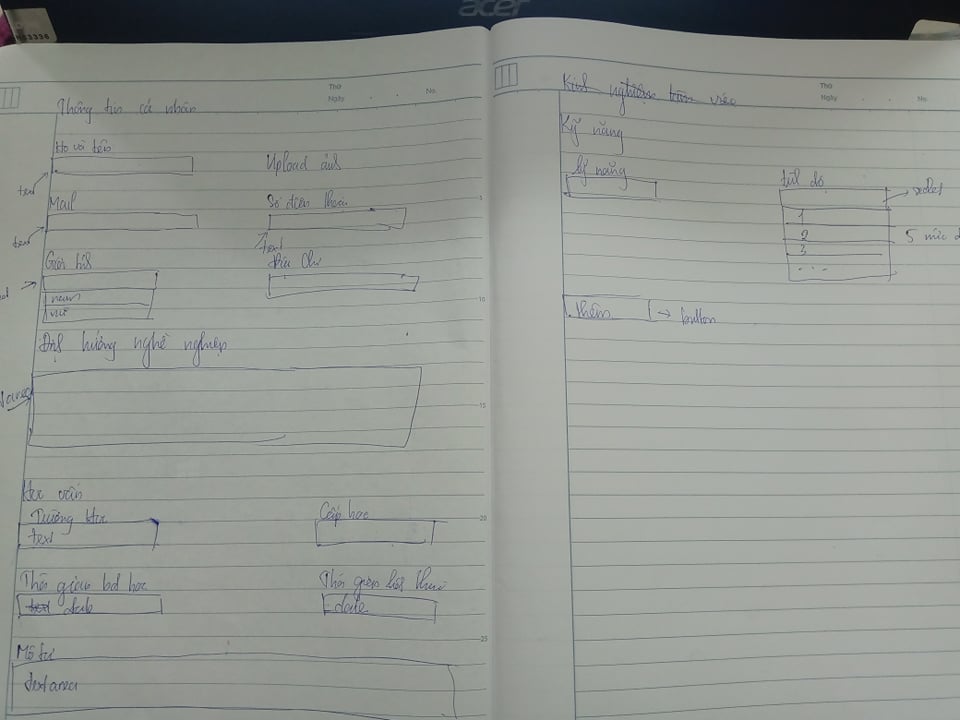 acer
Thứ
Ngày
No.
Thông tin cá nhân
Họ và tên
Upload ảnh
text
Mail
Số điện thoại
text
text
Giới tính
Địa chỉ
nam
nữ
Định hướng nghề nghiệp
Học vấn
Trường học
Cấp học
text
Thời gian bđ học
Thời gian kết thúc
text date
date
Mô tả
textarea
5
10
15
20
25
Thứ
Ngày
No.
Kinh nghiệm làm việc
Kỹ năng
kỹ năng
select
1
2
5 mức
3
...
Thêm → button